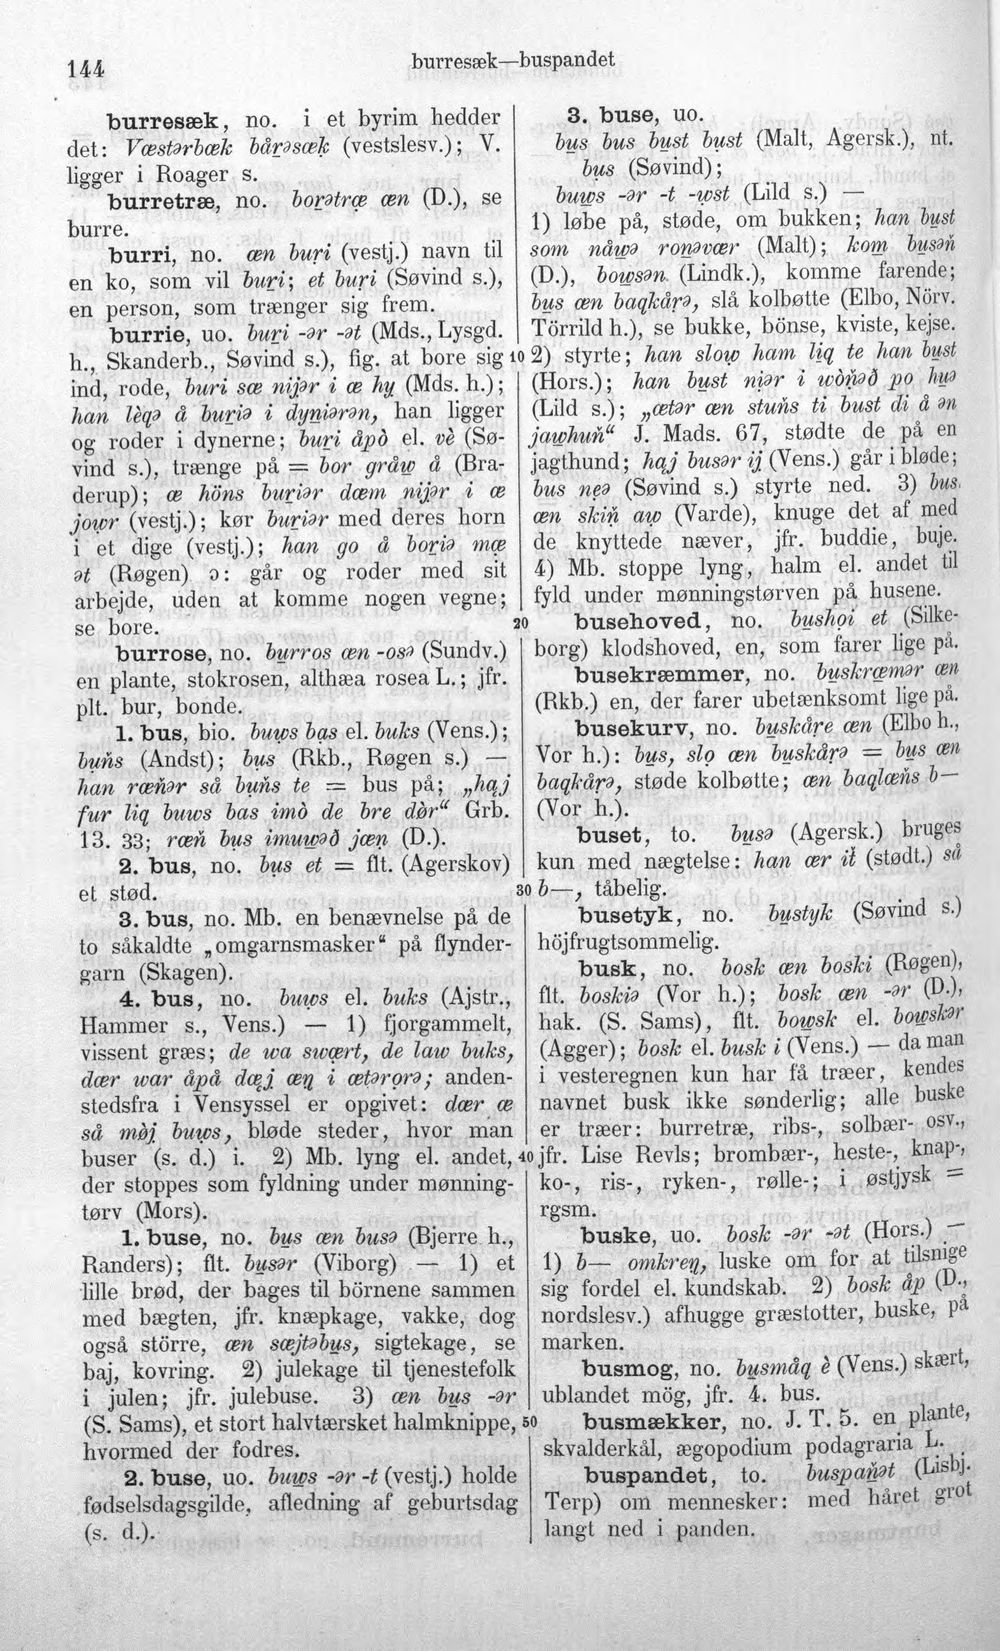 144
burresæk—buspandet
burresæk, no. i et byrim hedder
det: Væstərbæk bårəsæk (vestslesv.); V.
ligger i Roager s.
burretræ, no. borətræ æn (D.), se
burre.
burri, no. æn buri (vestj.) navn til
en ko, som vil buri; et buri (Søvind s.),
en person, som trænger sig frem.
burrie, uo. buri -ər -ət (Mds., Lysgd.
h., Skanderb., Søvind s.), fig. at bore sig
ind, rode, buri sæ nijər i æ hy (Mds. h.);
han lèqə å buriə i dyniərən, han ligger
og roder i dynerne; buri åpò el. vè (Sø-
vind s.), trænge på = bor gråw å (Bra-
derup); æ höns buriər dæm nijər i æ
jowr (vestj.); kør buriər med deres horn
i et dige (vestj.); han go å boriə mæ
ət (Røgen) ɔ: går og roder med sit
arbejde, uden at komme nogen vegne;
se bore.
burrose, no. burros æn -osə (Sundv.)
en plante, stokrosen, althæa rosea L.; jfr.
plt. bur, bonde.
1. bus, bio. buws bas el. buks (Vens.);
buñs (Andst); bus (Rkb., Røgen s.) —
han ræñər så buñs te = bus på; „haj
fur liq buws bas imò de bre dòr“ Grb.
13. 33; ræñ bus imuwəð jæn (D.).
2. bus, no. bus et = flt. (Agerskov)
et stød.
3. bus, no. Mb. en benævnelse på de
to såkaldte „omgarnsmasker“ på flynder-
garn (Skagen).
4. bus, no. buws el. buks (Ajstr.,
Hammer s., Vens.) — 1) fjorgammelt,
vissent græs; de wa swært, de law buks,
dær war åpå dæj æŋ i ætərorə; anden-
stedsfra i Vensyssel er opgivet: dær æ
så möj buws, bløde steder, hvor man
buser (s. d.) i. 2) Mb. lyng el. andet,
der stoppes som fyldning under mønning-
tørv (Mors).
1. buse, no. bus æn busə (Bjerre h.,
Randers); flt. busər (Viborg) — 1) et
lille brød, der bages til börnene sammen
med bægten, jfr. knæpkage, vakke, dog
også större, æn sæjtəbus, sigtekage, se
baj, kovring. 2) julekage til tjenestefolk
i julen; jfr. julebuse. 3) æn bus -ər
(S. Sams), et stort halvtærsket halmknippe,
hvormed der fodres.
2. buse, uo. buws -ər -t (vestj.) holde
fødselsdagsgilde, afledning af geburtsdag
(s. d.).
3. buse, uo.
bus bus bust bust (Malt, Agersk.), nt.
bus (Søvind);
buws -ər -t -wst (Lild s.) —
1) løbe på, støde, om bukken; han bust
som nåwə ronəvær (Malt); kom busəñ
(D.), bowsən (Lindk.), komme farende;
bus æn baqkårə, slå kolbøtte (Elbo, Nörv.
Törrild h.), se bukke, bönse, kviste, kejse.
10 2) styrte; han slow ham liq te han bust
(Hors.); han bust niər i wòñəð po huə
(Lild s.); „ætər æn stuñs ti bust di å ən
jawhuñ“ J. Mads. 67, stødte de på en
jagthund; haj busər ij (Vens.) går i bløde;
bus neə (Søvind s.) styrte ned. 3) bus
æn skiñ aw (Varde), knuge det af med
de knyttede næver, jfr. buddie, buje.
4) Mb. stoppe lyng, halm el. andet til
fyld under mønningstørven på husene.
20 busehoved, no. bushoi et (Silke-
borg) klodshoved, en, som farer lige på.
busekræmmer, no. buskræmər æn
(Rkb.) en, der farer ubetænksomt lige på.
busekurv, no. buskåre æn (Elbo h.,
Vor h.): bus, slo æn buskårə = bus æn
baqkårə, støde kolbøtte; æn baqlæñs b—
(Vor h.).
buset, to. busə (Agersk.) bruges
kun med nægtelse: han ær it (stødt.) så
30 b—, tåbelig.
busetyk, no. bustyk (Søvind s.)
höjfrugtsommelig.
busk, no. bosk æn boski (Røgen),
flt. boskiə (Vor h.); bosk æn -ər (D.),
hak. (S. Sams), flt. bowsk el. bowskər
(Agger); bosk el. busk i (Vens.) — da man
i vesteregnen kun har få træer, kendes
navnet busk ikke sønderlig; alle buske
er træer: burretræ, ribs-, solbær- osv.,
40 jfr. Lise Revls; brombær-, heste-, knap-,
ko-, ris-, ryken-, rølle-; i østjysk =
rgsm.
buske, uo. bosk -ər -ət (Hors.) —
1) b— omkreŋ, luske om for at tilsnige
sig fordel el. kundskab. 2) bosk åp (D.,
nordslesv.) afhugge græstotter, buske, på
marken.
busmog, no. busmåq è (Vens.) skært,
ublandet mög, jfr. 4. bus.
50 busmækker, no. J. T. 5. en plante,
skvalderkål, ægopodium podagraria L.
buspandet, to. buspañət (Lisbj.
Terp) om mennesker: med håret grot
langt ned i panden.